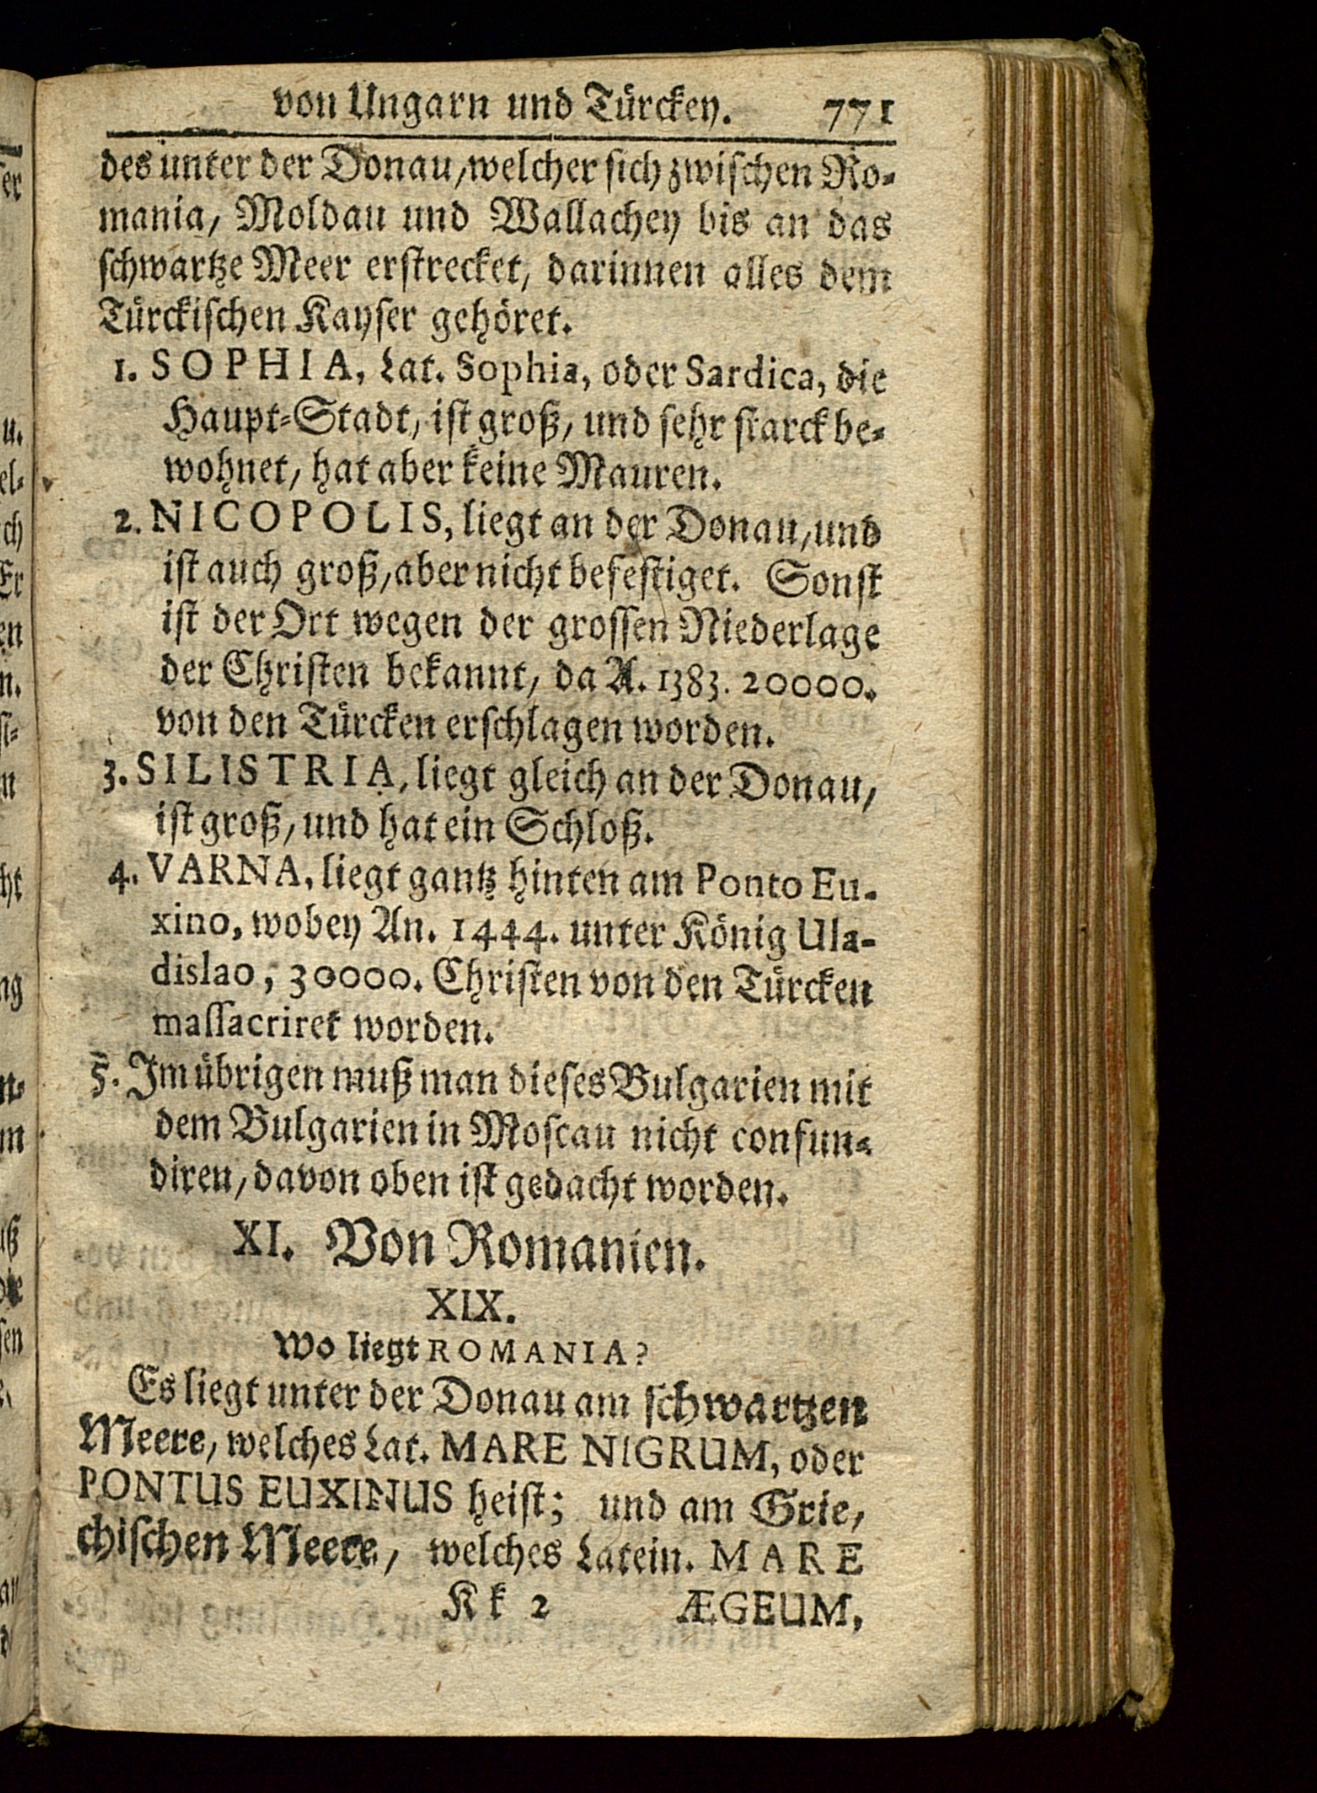 von Ungarn und Türckey. 771
des unter der Donau, welcher sich zwischen Ro-
mania, Moldau und Wallachey bis an das
schwartze Meer erstrecket, darinnen alles dem
Türckischen Kayser gehöret.
1. SOPHIA, Lat. Sophia, oder Sardica, die
Haupt-Stadt, ist groß, und sehr starck be-
wohnet, hat aber keine Mauren.
2. NICOPOLIS, liegt an der Donau, und
ist auch groß, aber nicht befestiget. Sonst
ist der Ort wegen der grossen Niederlage
der Christen bekannt, da A. 1383. 20000.
von den Türcken erschlagen worden.
3. SILISTRIA, liegt gleich an der Donau,
ist groß, und hat ein Schloß.
4. VARNA, liegt gantz hinten am Ponto Eu-
xino, wobey An. 1444. unter König Ula-
dislao, 30000. Christen von den Türcken
massacriret worden.
5. Im übrigen muß man dieses Bulgarien mit
dem Bulgarien in Moscau nicht confun-
diren, davon oben ist gedacht worden.
XI. Von Romanien.
XIX.
Wo liegt ROMANIA?
Es liegt unter der Donau am schwartzen
Meere, welches Lat. MARE NIGRUM, oder
PONTUS EUXINUS heist; und am Grie,
chischen Meere, welches Latein. MARE
Kk 2 ÆGEUM,